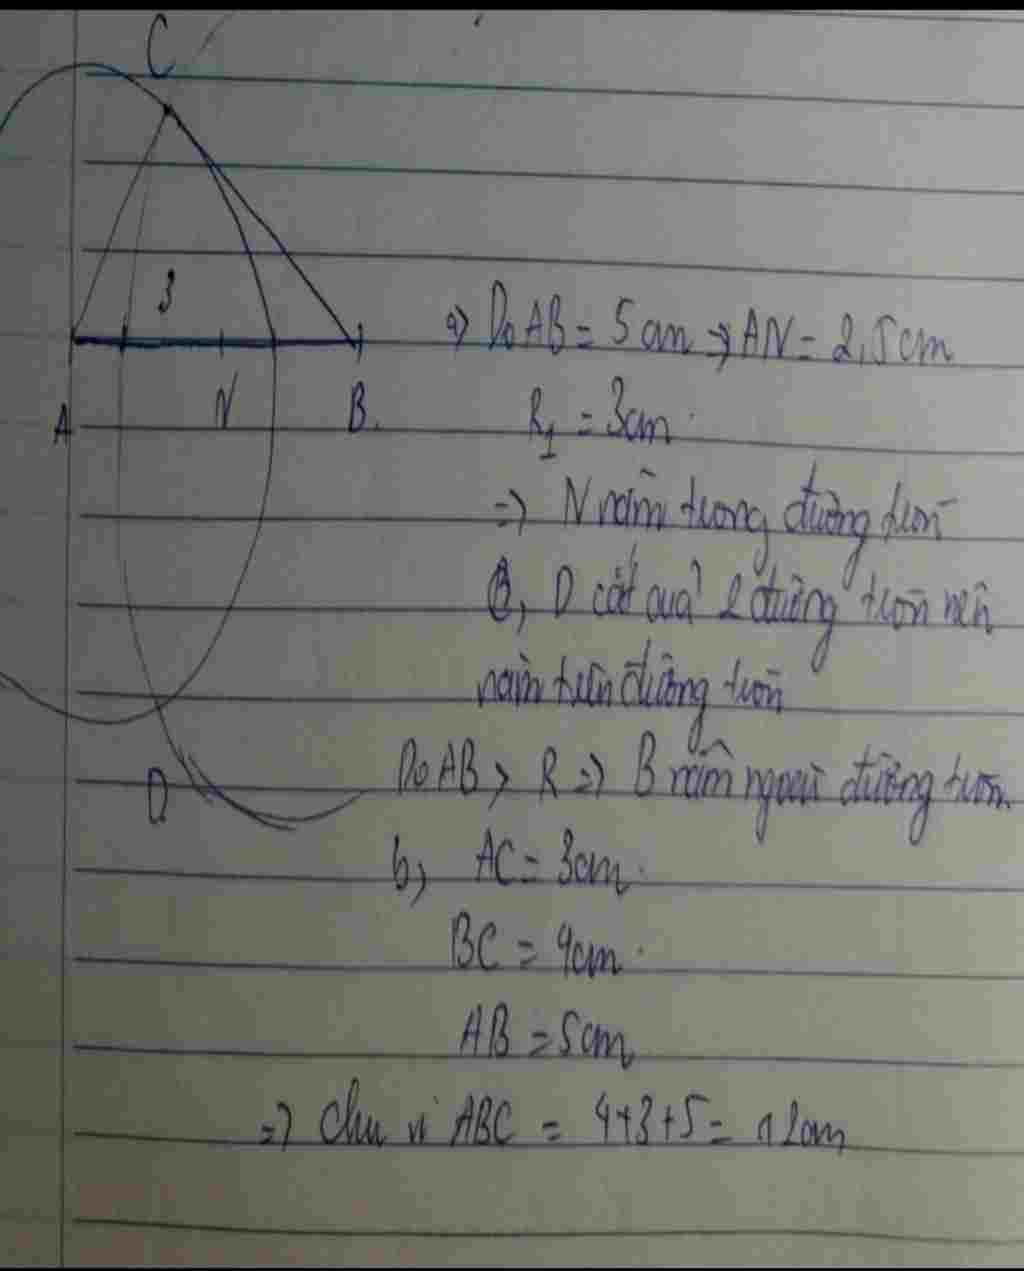 C
3
A
N
B.
D
a) Do AB = 5cm => AN = 2,5cm
R1 = 3cm.
=> N nằm trong đường tròn
C, D cắt quả 2 đường tròn nên
nằm trên đường tròn
Do AB > R => B nằm ngoài đường tròn.
b) AC = 3cm.
BC = 4cm.
AB = 5cm
=> Chu vi ABC = 4+3+5 = 12cm